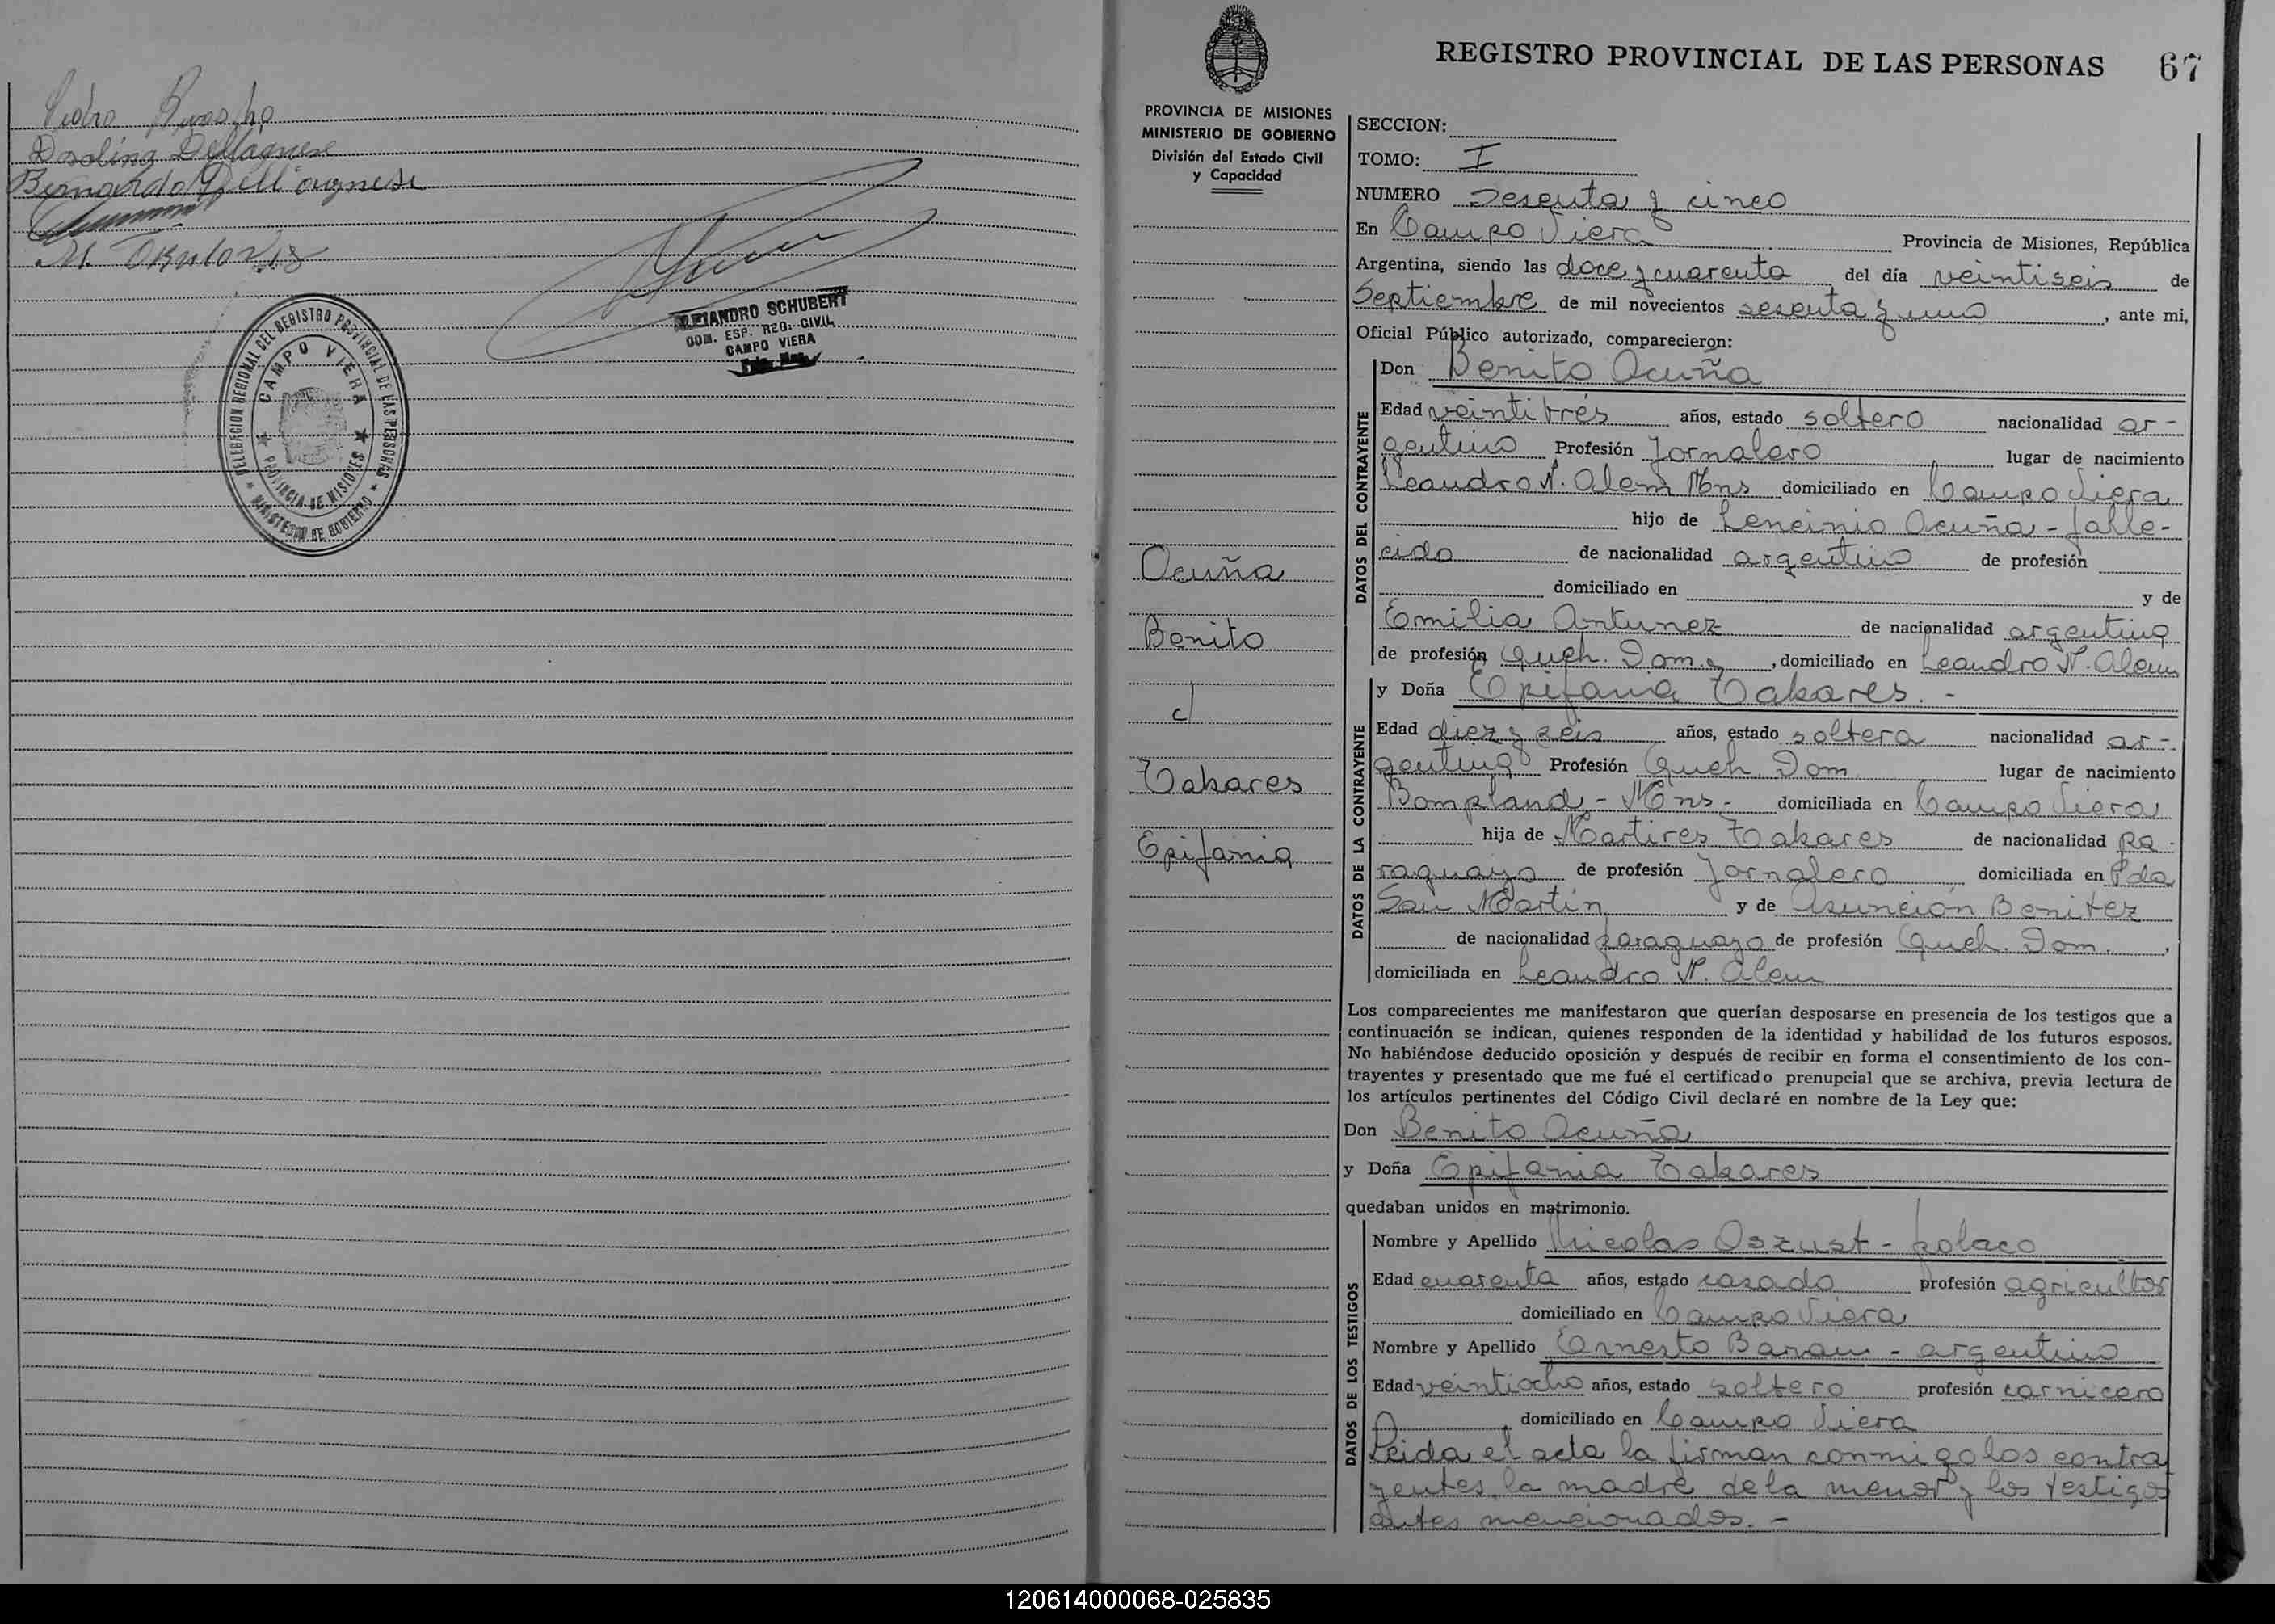 Pedro
Dosolina Dellagnese
Bernardo Dell'agnese
ALEJANDRO SCHUBERT
COM. ESP. REG. CIVIL
CAMPO VIERA
DELEGACION REGIONAL DEL REGISTRO PROVINCIAL DE LAS PERSONAS
★ MINISTERIO DE GOBIERNO ★
CAMPO VIERA
★ PROVINCIA DE MISIONES ★
REGISTRO PROVINCIAL DE LAS PERSONAS 67
PROVINCIA DE MISIONES
MINISTERIO DE GOBIERNO
División del Estado Civil
y Capacidad
Ocuña
Benito
c/
Takares
Epifania
SECCION:
TOMO: I
NUMERO Sesenta y cinco
En Campo Viera Provincia de Misiones, República
Argentina, siendo las doce y cuarenta del día veintiseis de
Septiembre de mil novecientos sesenta y uno, ante mi,
Oficial Público autorizado, comparecieron:
DATOS DEL CONTRAYENTE
Don Benito Ocuña
Edad veintitrés años, estado soltero nacionalidad ar-
gentino Profesión Jornalero lugar de nacimiento
Leandro N. Alem Mns domiciliado en Campo Viera
hijo de Lencinio Ocuña - falle-
cido de nacionalidad argentino de profesión
domiciliado en y de
Emilia Antunez de nacionalidad argentina
de profesión Queh. Dom., domiciliado en Leandro N. Alem
DATOS DE LA CONTRAYENTE
y Doña Epifania Takares. -
Edad diez y seis años, estado soltera nacionalidad ar-
gentina Profesión Queh. Dom. lugar de nacimiento
Bompland - Mns - domiciliada en Campo Viera
hija de Martires Takares de nacionalidad pa-
raguayo de profesión Jornalero domiciliada en Pda
San Martín y de Asunción Benitez
de nacionalidad paraguaya de profesión Queh. Dom.,
domiciliada en Leandro N. Alem
Los comparecientes me manifestaron que querían desposarse en presencia de los testigos que a
continuación se indican, quienes responden de la identidad y habilidad de los futuros esposos.
No habiéndose deducido oposición y después de recibir en forma el consentimiento de los con-
trayentes y presentado que me fué el certificado prenupcial que se archiva, previa lectura de
los artículos pertinentes del Código Civil declaré en nombre de la Ley que:
Don Benito Ocuña
y Doña Epifania Takares
quedaban unidos en matrimonio.
DATOS DE LOS TESTIGOS
Nombre y Apellido Nicolas Oszust - polaco
Edad cuarenta años, estado casado profesión agricultor
domiciliado en Campo Viera
Nombre y Apellido Ernesto Baran - argentino
Edad veintiocho años, estado soltero profesión carnicero
domiciliado en Campo Viera
Leida el acta la firman conmigo los contra
yentes, la madre de la menor y los testigos
antes mencionados. -
120614000068-025835